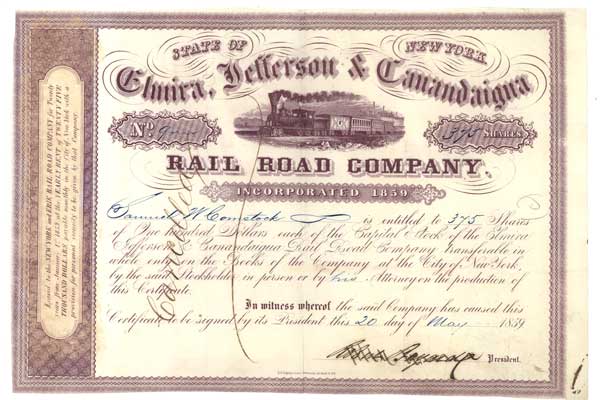 STATE OF NEW YORK
Elmira, Jefferson & Canandaigua
No
375 SHARES
RAIL ROAD COMPANY.
INCORPORATED 1859
Samuel W Comstock is entitled to 375 Shares
of One Hundred Dollars each of the Capital Stock of the Elmira
Jefferson & Canandaigua Rail Road Company Transferable in
whole only on the Books of the Company at the City of New York,
by the said Stockholder in person or by his Attorney on the production of
this Certificate.
In witness whereof the said Company has caused this
Certificate to be signed by its President this 20 day of May 1859
President.
Cancelled
Leased to the NEW YORK and ERIE RAIL ROAD COMPANY for Twenty
years from January 1, 1859, at the YEARLY RENT of TWENTY FIVE
THOUSAND DOLLARS payable monthly in the City of New York with a
provision for permanent security to be given by that Company.